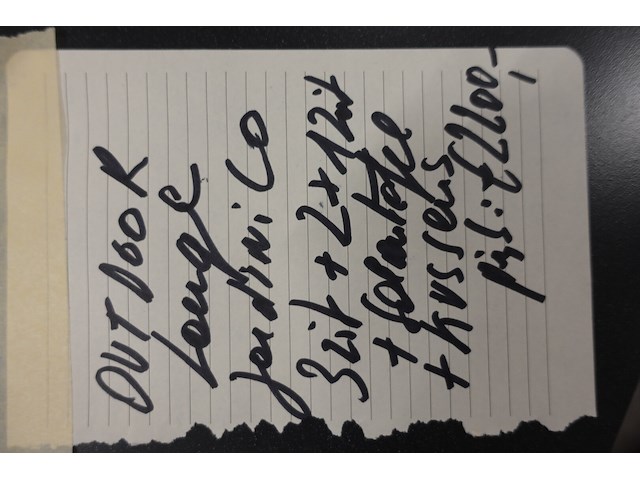 OUTDOOR
Lounge
Jardinico
3zit + 2 x 1 Zit
+ Salontafel
+ Kussens
prijs: € 2200,-